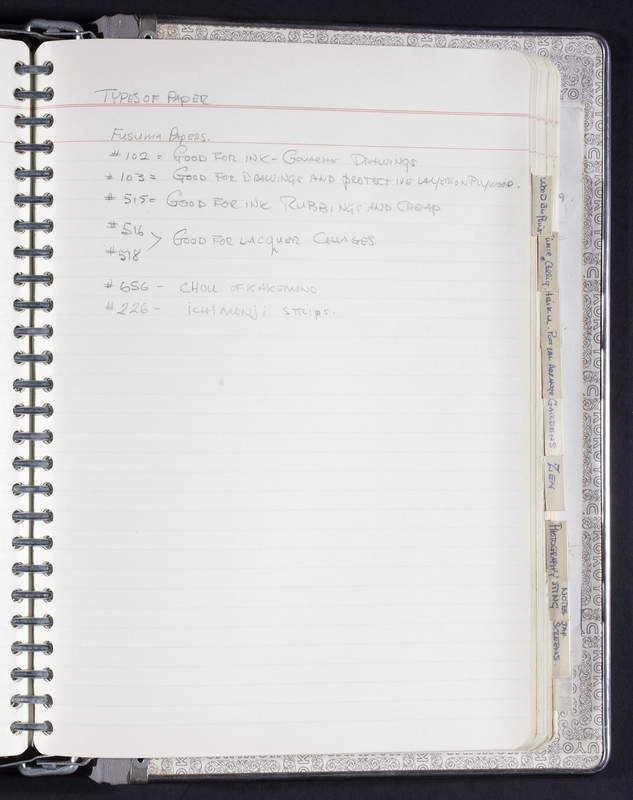 TYPES OF PAPER
FUSUMA PAPERS.
#102 = GOOD FOR INK - GOUACHE DRAWINGS
#103 = GOOD FOR DRAWINGS AND PROTECTIVE LAYERS ON PLYWOOD.
#515 = GOOD FOR INK RUBBINGS AND CHEAP
#516
> GOOD FOR LACQUER COLLAGES.
#518
#656 - CHOU OF KAKEMONO
#226 - ICHIMONJI STRIPS.
GARDENS
ZEN
PHOTOGRAPHY
NOTES JAP.
SCREENS